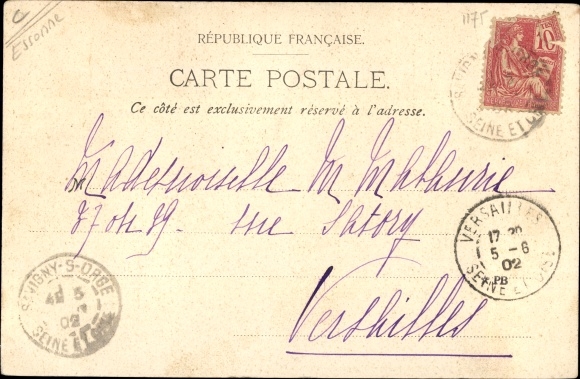 Essonne
1175
10
RÉPUBLIQUE FRANÇAISE.
CARTE POSTALE.
Ce côté est exclusivement réservé à l'adresse.
SEINE ET
Mademoiselle M
rue Satory
Versailles
VERSAILLES
17 30
5 - 6
02
PB
SEINE ET OISE
SAVIGNY-S-ORGE
5
02
SEINE ET OISE